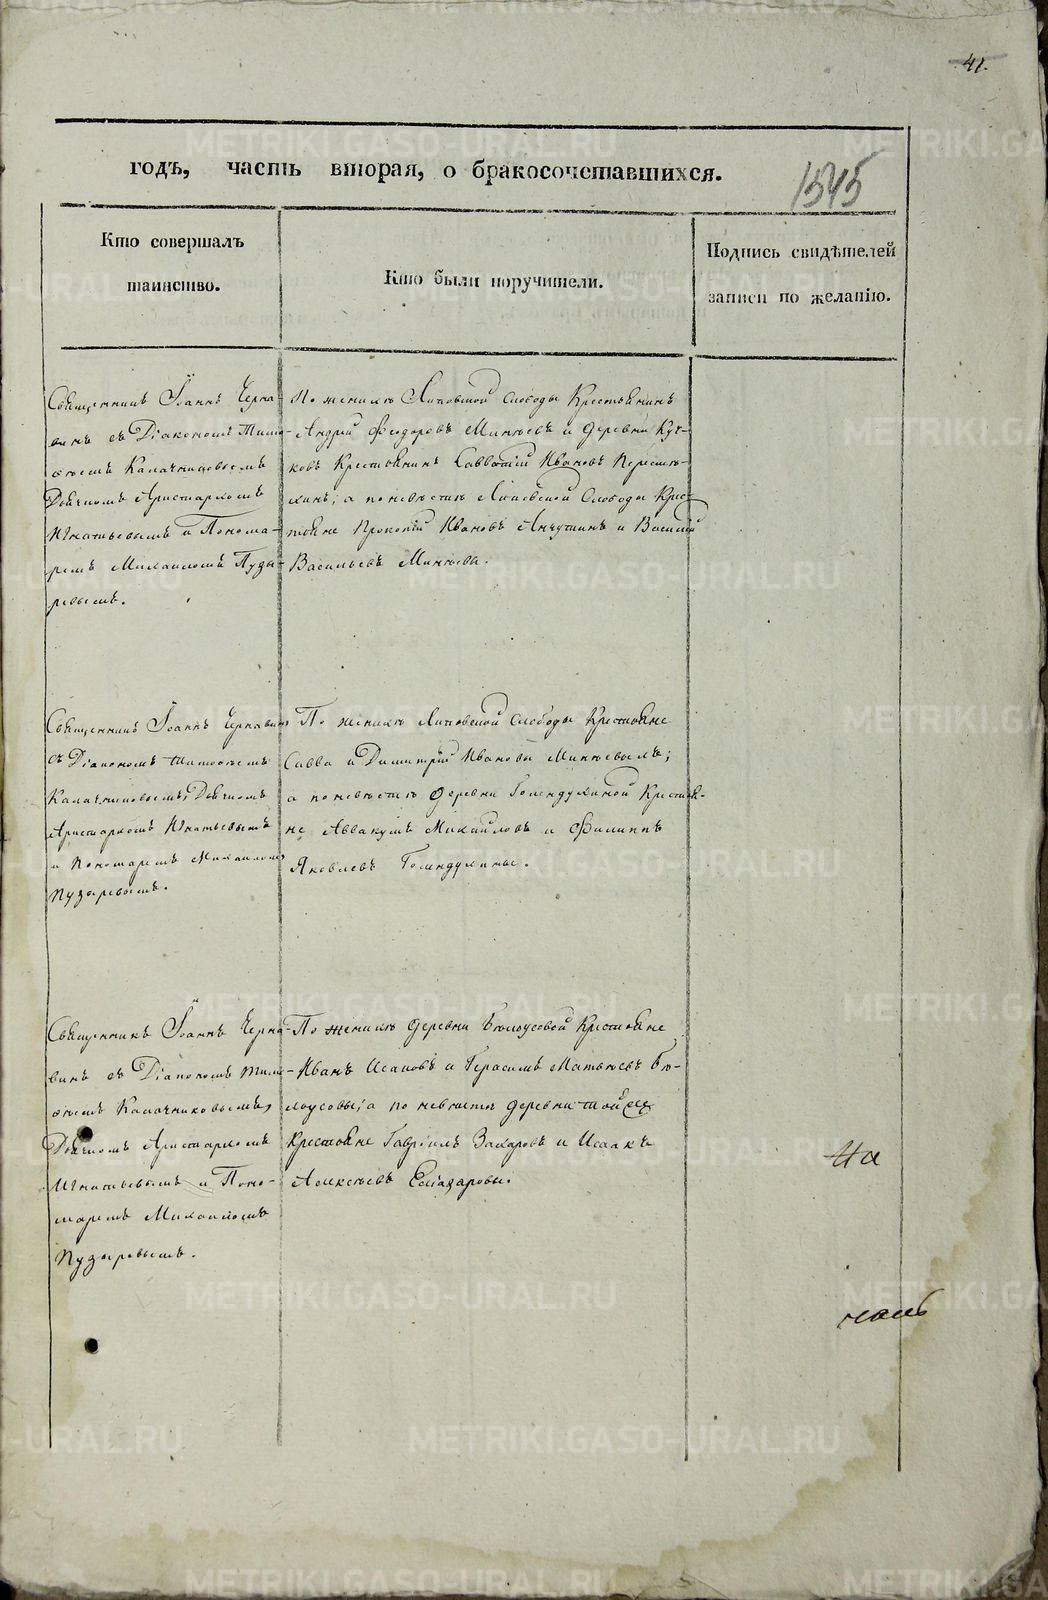 41.
годъ, часть вторая, о бракосочетавшихся.
1545
Кто совершалъ
таинство.
Кто были поручители.
Подпись свидѣтелей
записи по желанію.
Священникъ Іоаннъ Черна-
винъ съ Діакономъ Тимо-
ѳеемъ Калачниковымъ
Дьячкомъ Аристархомъ
Игнатьевымъ и Понома-
ремъ Михаиломъ Пузы-
ревымъ.
По женихѣ Липовской Слободы Крестьянинъ
Андрей Феодоровъ Минѣевъ и деревни
Крестьянинъ Савватій Ивановъ
а по невѣстѣ Липовской Слободы Крес-
тьяне Прокопій Ивановъ и Василій
Васильевъ Минѣевы.
Священникъ Іоаннъ Чернавинъ
съ Діакономъ Тимоѳеемъ
Калачниковымъ, Дьячкомъ
Аристархомъ Игнатьевымъ
и Пономаремъ Михаиломъ
Пузыревымъ.
По женихѣ Липовской Слободы Крестьяне
Савва и Димитрій Ивановы
а по невѣстѣ деревни Голендухиной Крестья-
не Аввакумъ Михайловъ и Филиппъ
Яковлевъ Голендухины.
Священникъ Іоаннъ Черна-
винъ съ Діакономъ Тимо-
ѳеемъ Калачниковымъ,
Дьячкомъ Аристархомъ
Игнатьевымъ и Поно-
маремъ Михаиломъ
Пузыревымъ.
По женихѣ деревни Бѣлоусовой Крестьяне
Иванъ Исаковъ и Герасимъ Матвѣевъ Бѣ-
лоусовы; а по невѣстѣ деревни той же
Крестьяне Гавріилъ Захаровъ и Исаакъ
Алексѣевъ Елизаровы.